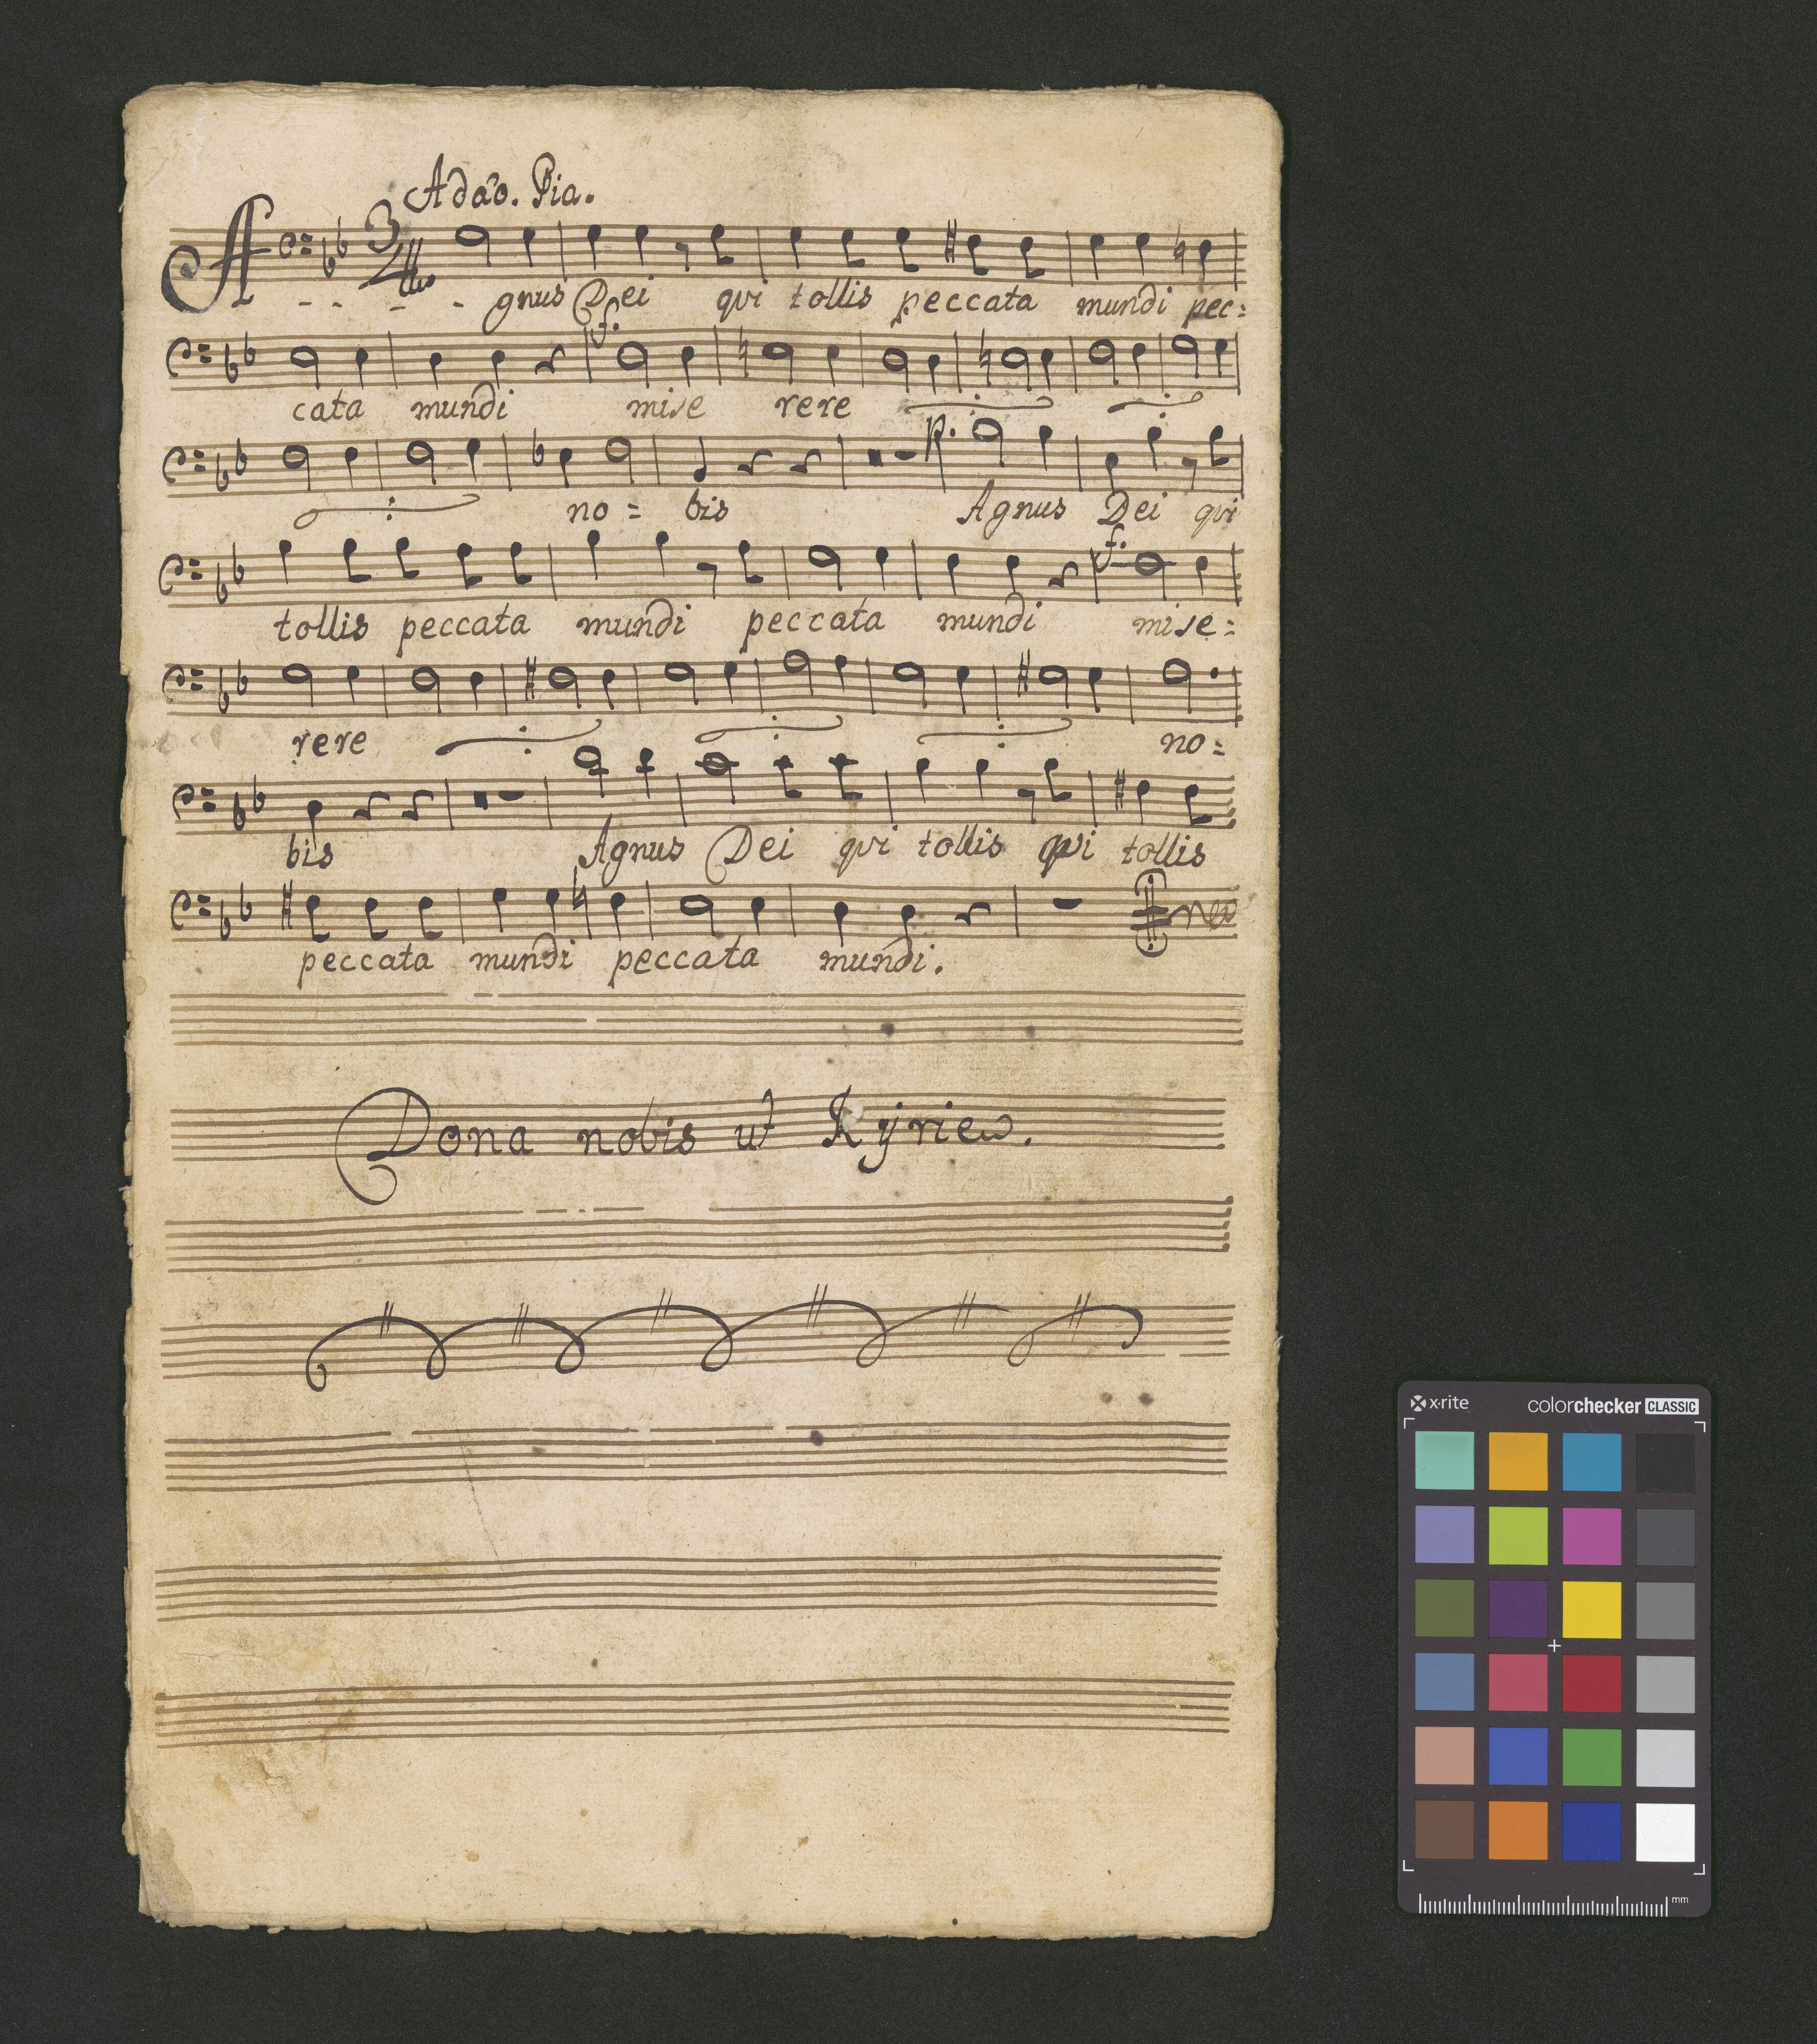 Adăo. Pia.
3
4
A - - - - gnus Dei qui tollis peccata mundi pec:
f.
cata mundi mise rere
p.
no = bis Agnus Dei qui
f.
tollis peccata mundi peccata mundi mise:
rere no:
bis Agnus Dei qui tollis qui tollis
peccata mundi peccata mundi.
Dona nobis ut Kÿrie
x·rite colorchecker CLASSIC
mm